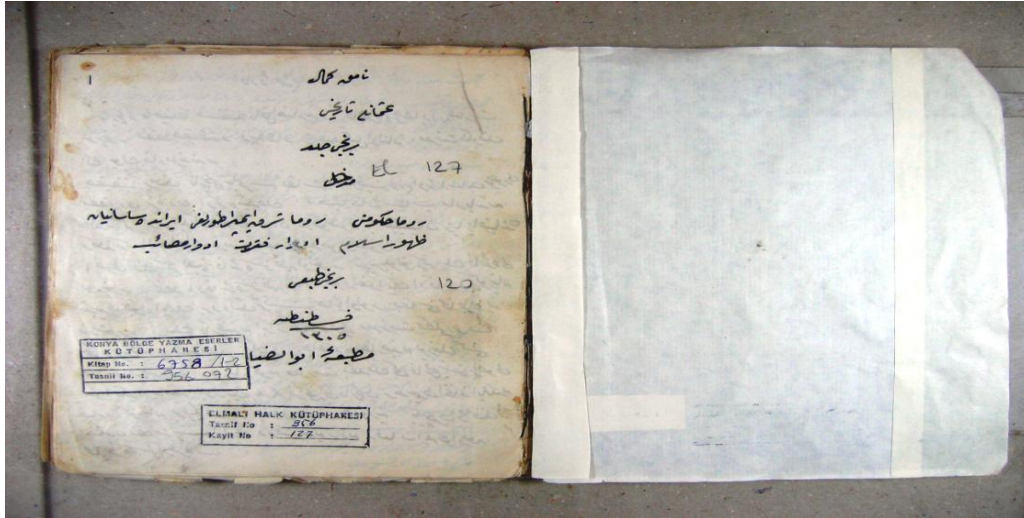 ١
نامق كمال
عثمانلى تاريخى
برنجى جلد
مدخل
127
روما حكومتى روما شرق ايمپراطورلغى ايرانده ساسانيان
ظهور اسلام ادوار فترت ادوار مصائب
برنجى طبعى
120
قسطنطنيه
١٣٠٥
مطبعهٔ ابوالضيا
KONYA BÖLGE YAZMA ESERLER
KÜTÜPHANESİ
Kitap No. : 6758 /1-2
Tasnif No. : 956 092
ELMALI HALK KÜTÜPHANESİ
Tasnif No : 956
Kayıt No : 127